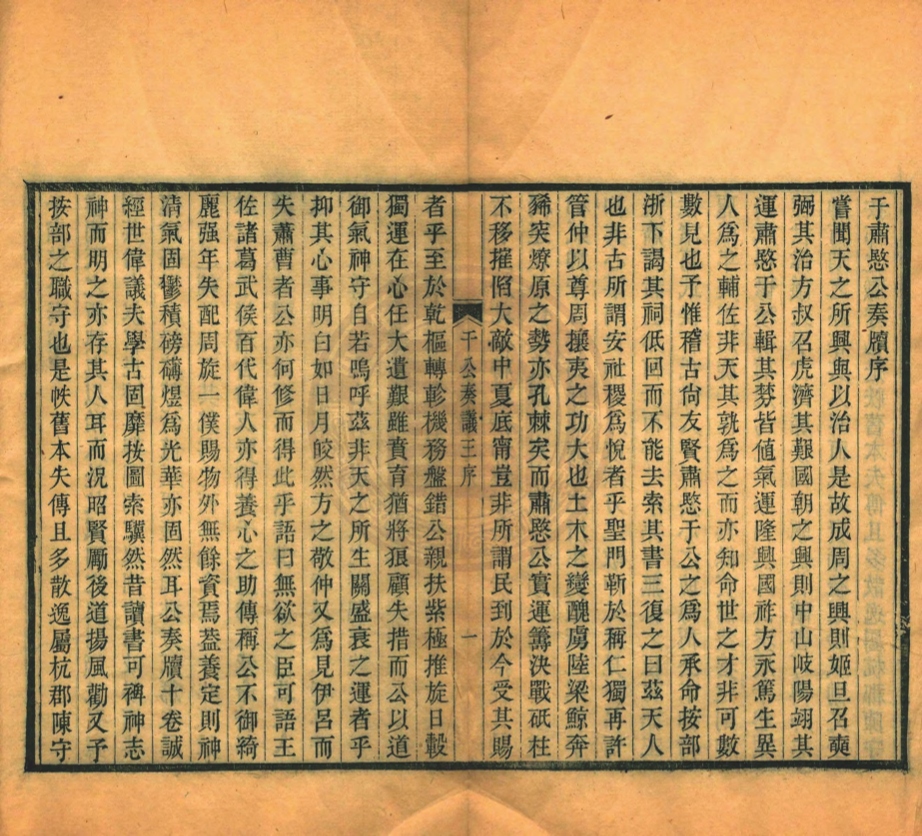 于肅愍公奏牘序
嘗聞天之所興與以治人是故成周之興則姬旦召奭
弼其治方叔召虎濟其艱國朝之興則中山岐陽翊其
運肅愍于公輯其棼皆値氣運隆興國祚方永篤生異
人爲之輔佐非天其孰爲之而亦知命世之才非可數
數見也予惟稽古尙友賢肅愍于公之爲人承命按部
浙下謁其祠低回而不能去索其書三復之曰茲天人
也非古所謂安社稷爲悅者乎聖門靳於稱仁獨再許
管仲以尊周攘夷之功大也土木之變醜虜陸梁鯨奔
豨突燎原之勢亦孔棘矣而肅愍公實運籌決戰砥柱
不移摧陷大敵中夏底甯豈非所謂民到於今受其賜
于公奏議三序
一
者乎至於乾樞轉軫機務盤錯公親扶紫極推旋日轂
獨運在心任大遺艱雖賁育猶將狼顧失措而公以道
御氣神守自若嗚呼茲非天之所生關盛衰之運者乎
抑其心事明白如日月皎然方之敬仲又爲見伊呂而
失蕭曹者公亦何修而得此乎語曰無欲之臣可語王
佐諸葛武侯百代偉人亦得養心之助傳稱公不御綺
麗强年失配周旋一僕賜物外無餘資焉葢養定則神
淸氣固鬱積磅礴煜爲光華亦固然耳公奏牘十卷誠
經世偉議夫學古固靡按圖索驥然昔讀書可裨神志
神而明之亦存其人耳而況昭賢勵後道揚風勸又予
按部之職守也是帙舊本失傳且多散逸屬杭郡陳守